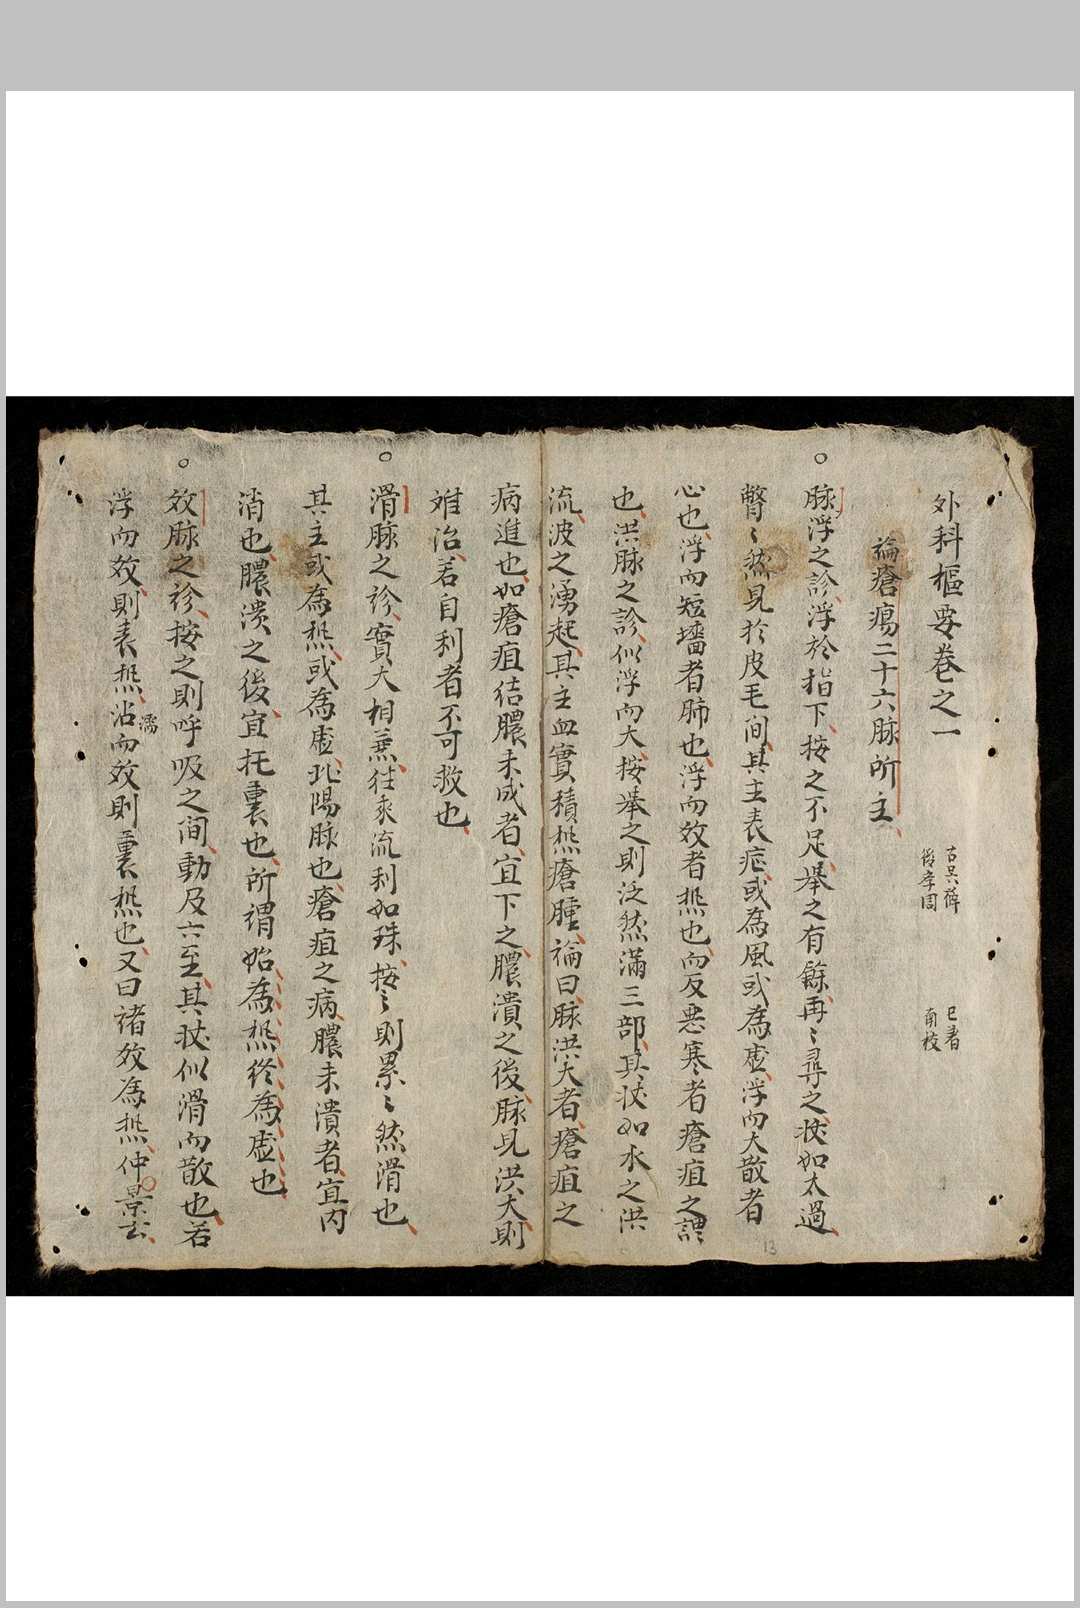 外科樞要卷之一
古吳薛
已著
後學周
南枝
論瘡瘍二十六脉所主
脉浮之診浮於指下按之不足舉之有餘再〻尋之狀如太過
瞥〻然見於皮毛間其主表症或為風或為虛浮而大散者
心也浮而短墻者肺也浮而效者熱也而反悪寒者瘡疽之謂
也洪脉之診似浮而大按舉之則泛然滿三部其狀如水之洪
流波之湧起其主血實積熱瘡腫論曰脉洪大者瘡疽之
病進也如瘡疽结膿未成者宜下之膿潰之後脉見洪大則
难治若自利者不可救也
滑脉之診實大相兼往来流利如珠按〻則累〻然滑也
其主或為熱或為虛此陽脉也瘡疽之病膿未潰者宜内
消也膿潰之後宜托裏也所謂始為熱终為虛也
效脉之診按之則呼吸之间動及六至其狀似滑而散也若
浮而效則表熱沾而效則裏熱也又曰诸效為熱仲景云
濡
13